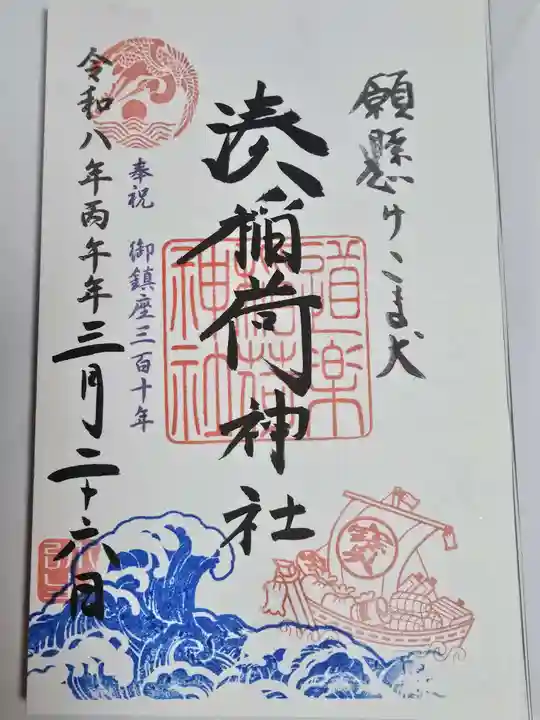 願懸けこま犬
湊稲荷神社
道楽
稲荷
神社
奉祝 御鎮座三百十年
令和八年丙午年三月二十六日